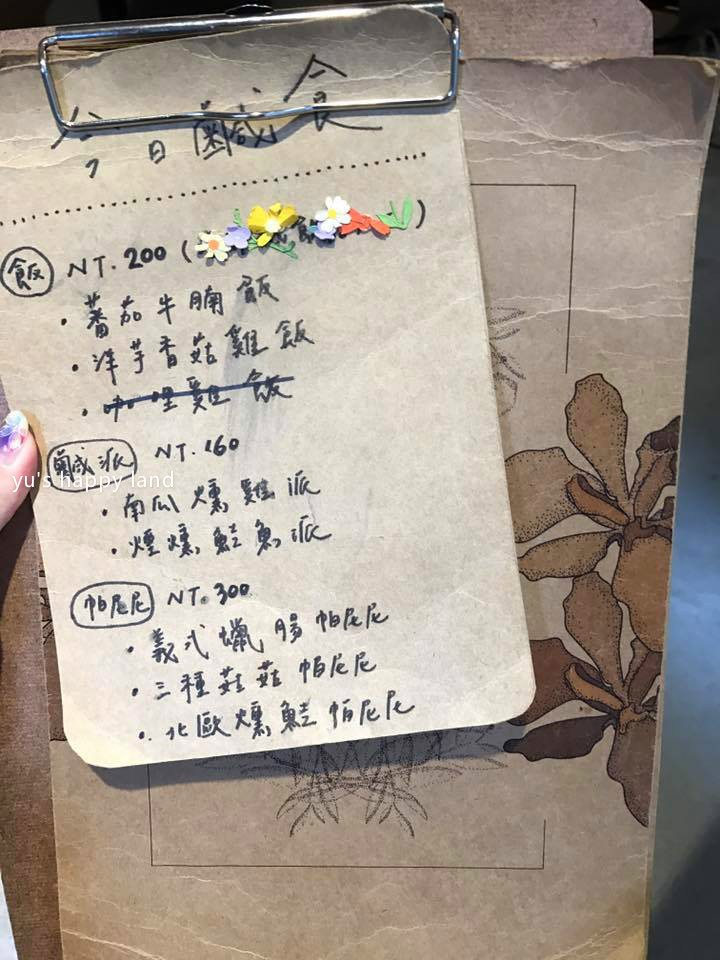 今日鹹食
飯 NT.200 ( )
· 蕃茄牛腩飯
· 洋芋香菇雞飯
· 咖哩雞飯
鹹派 NT.160
yu's happy land
· 南瓜燻雞派
· 煙燻鮭魚派
帕尼尼 NT.300
· 義式臘腸帕尼尼
· 三種菇菇帕尼尼
· 北歐燻鮭帕尼尼